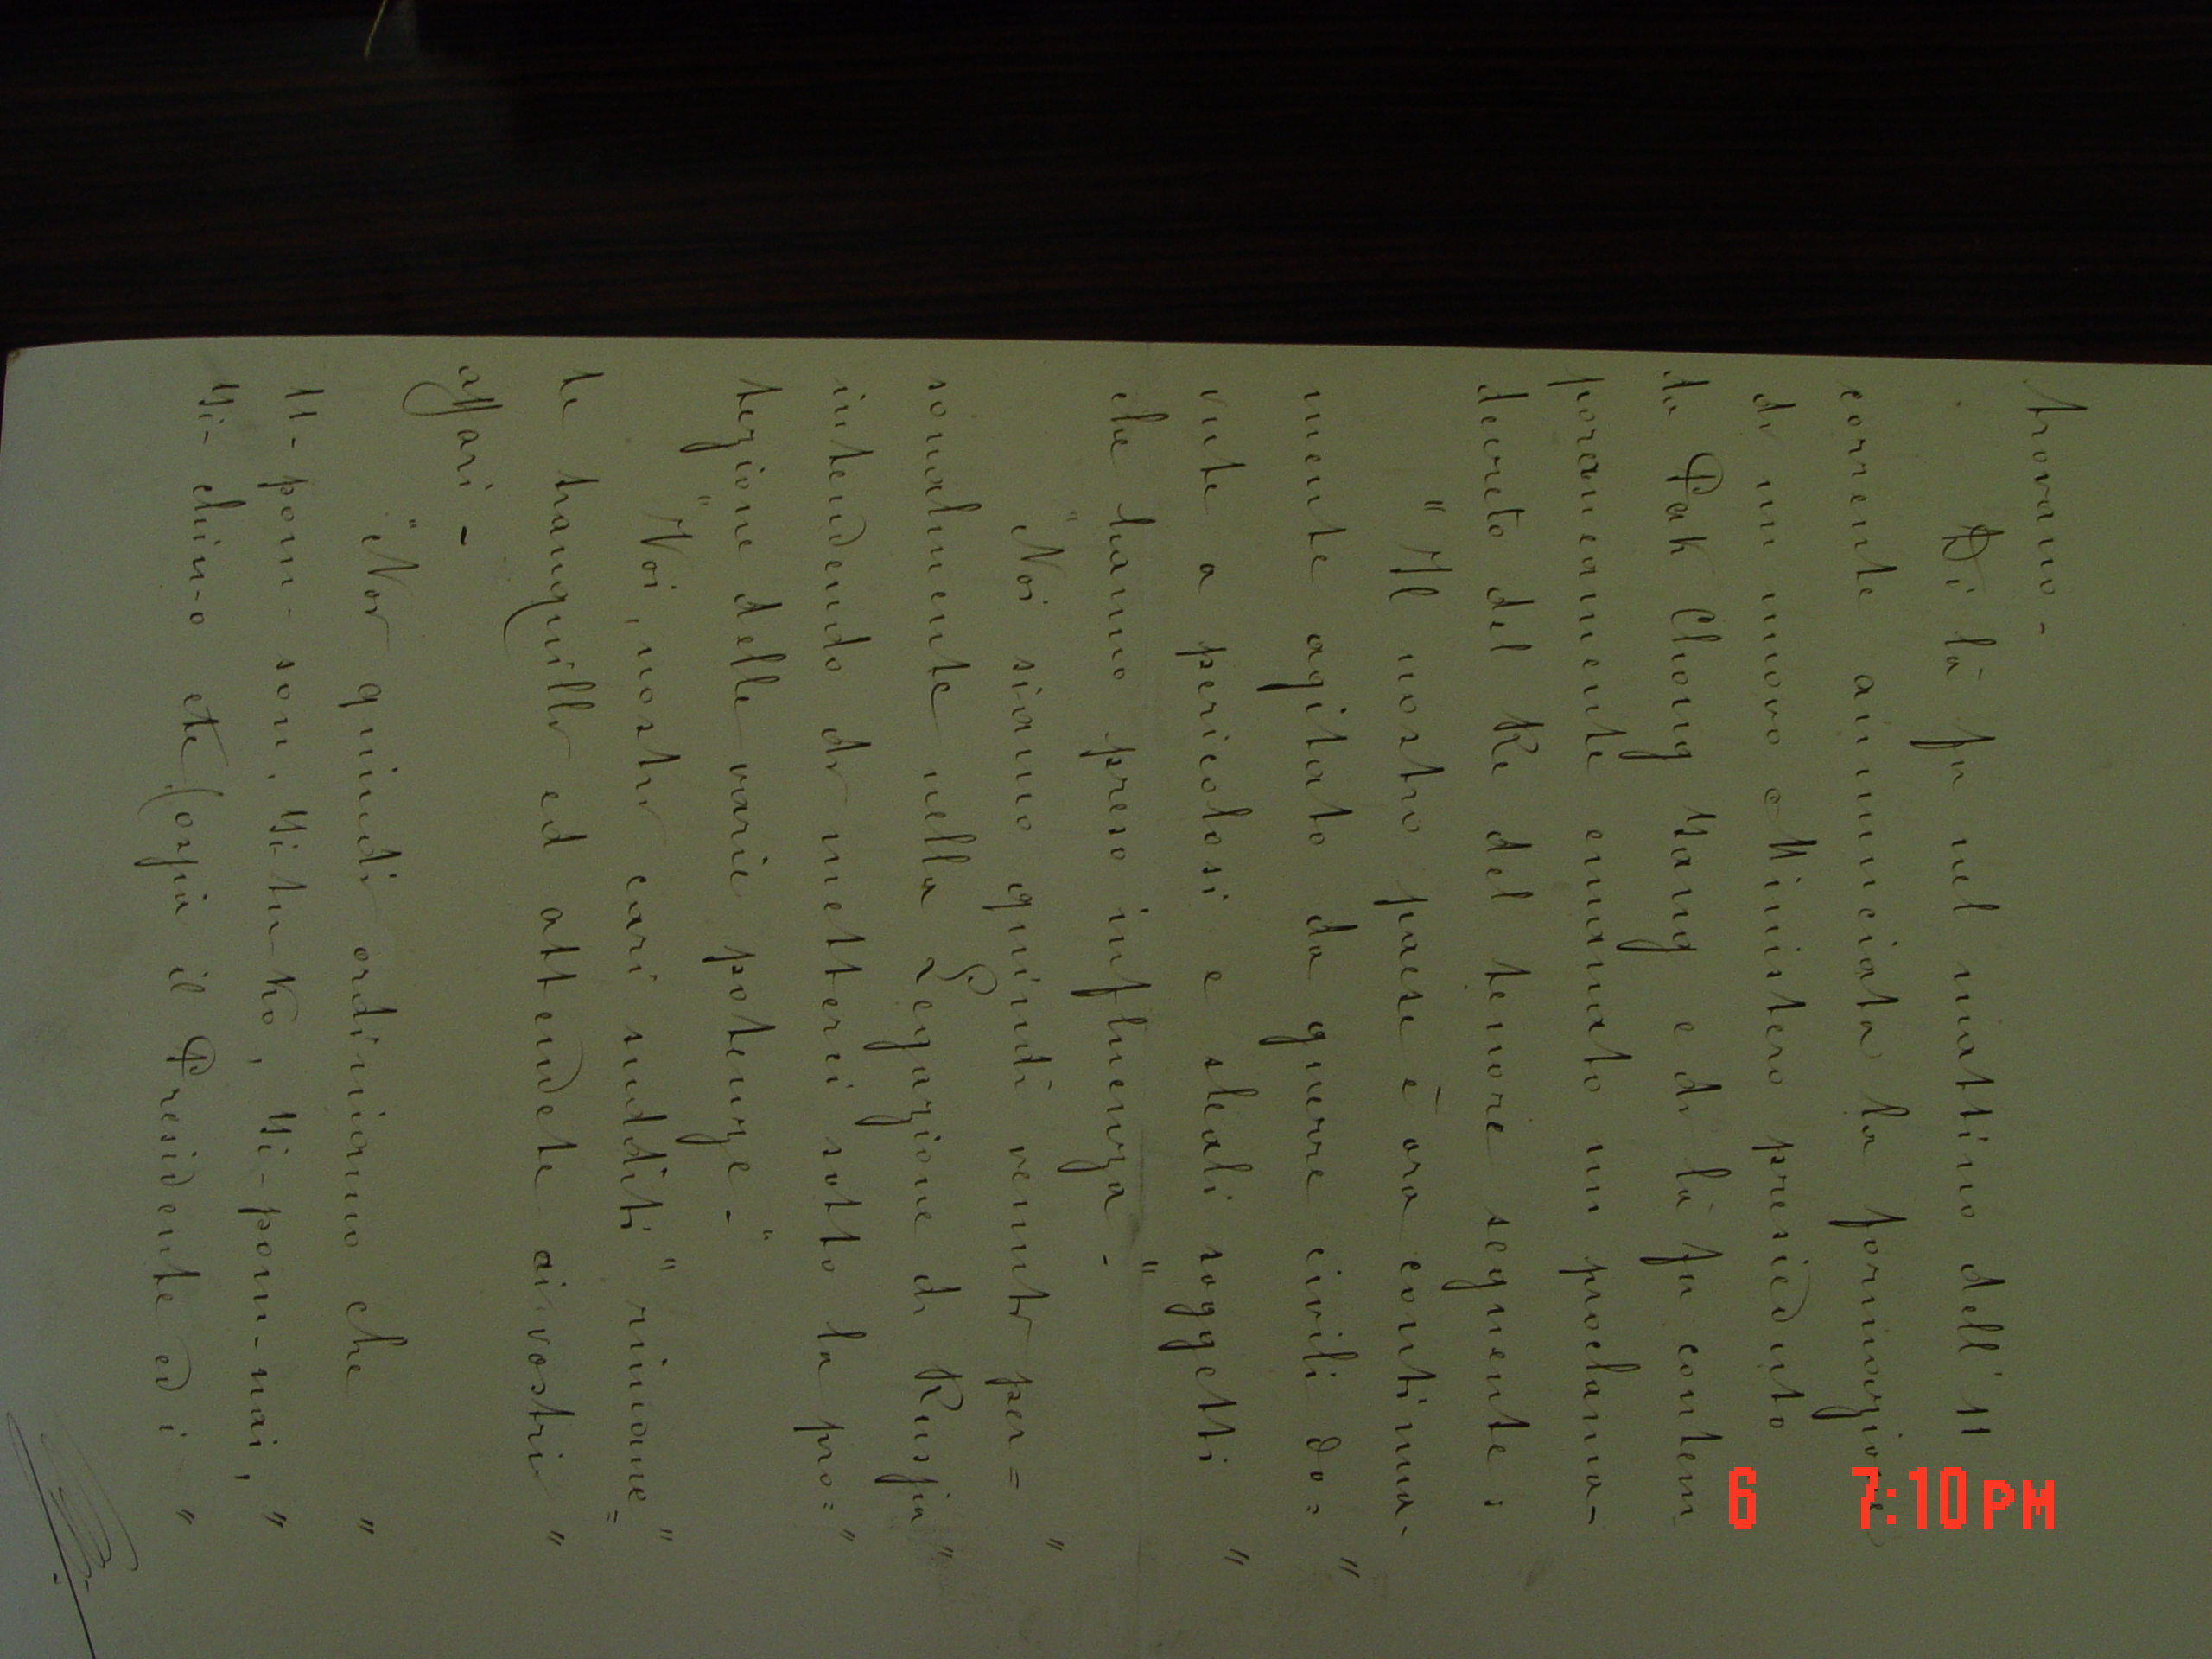 trovano -
Di là fu nel mattino dell' 11
corrente annunciata la formazione
di un nuovo Ministero presieduto
da Pak Chong Yang e di là fu contem
poraneamente emanato un proclama-
decreto del Re del tenore seguente :
" Il nostro paese è ora continua-
mente agitato da guerre civili do= "
vute a pericolosi e sleali soggetti "
che hanno preso influenza - "
" Noi siamo quindi venuti per= "
sonalmente nella Legazione di Russia "
intendendo di metterci sotto la pro= "
tezione delle varie potenze - "
" Voi, nostri cari sudditi " rimane= "
te tranquilli ed attendete ai vostri "
affari -
" Noi quindi ordiniamo che "
U-pom-son, Yi tu ko, Yi-pom-nai, "
Yi- chin-o etc (ossia il Presidente ed i "
6 7:10PM